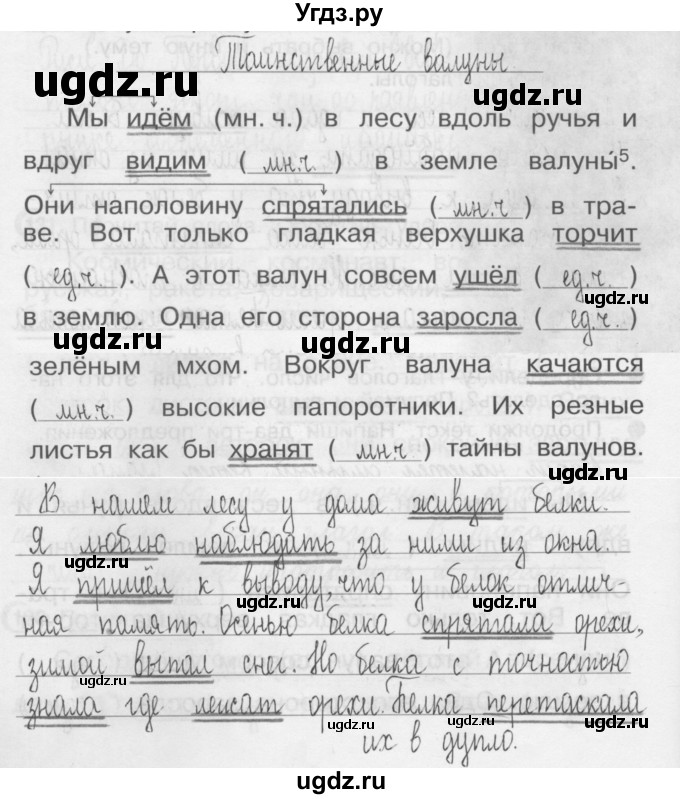 Угдз.ру
Таинственные валуны
Мы идём (мн. ч.) в лесу вдоль ручья и
вдруг видим ( мн.ч. ) в земле валуны́⁵.
Они наполовину спрятались ( мн.ч ) в тра-
ве. Вот только гладкая верхушка торчит
( ед.ч. ). А этот валун совсем ушёл ( ед.ч. )
в землю. Одна его сторона заросла ( ед.ч. )
зелёным мхом. Вокруг валуна качаются
( мн.ч. ) высокие папоротники. Их резные
листья как бы хранят ( мн.ч ) тайны валунов.
В нашем лесу у дома живут белки.
Я люблю наблюдать за ними из окна.
Я пришёл к выводу, что у белок отлич-
ная память. Осенью белка спрятала орехи,
зимой выпал снег. Но белка с точностью
знала где лежат орехи. Белка перетаскала
их в дупло.
ugdz.ru